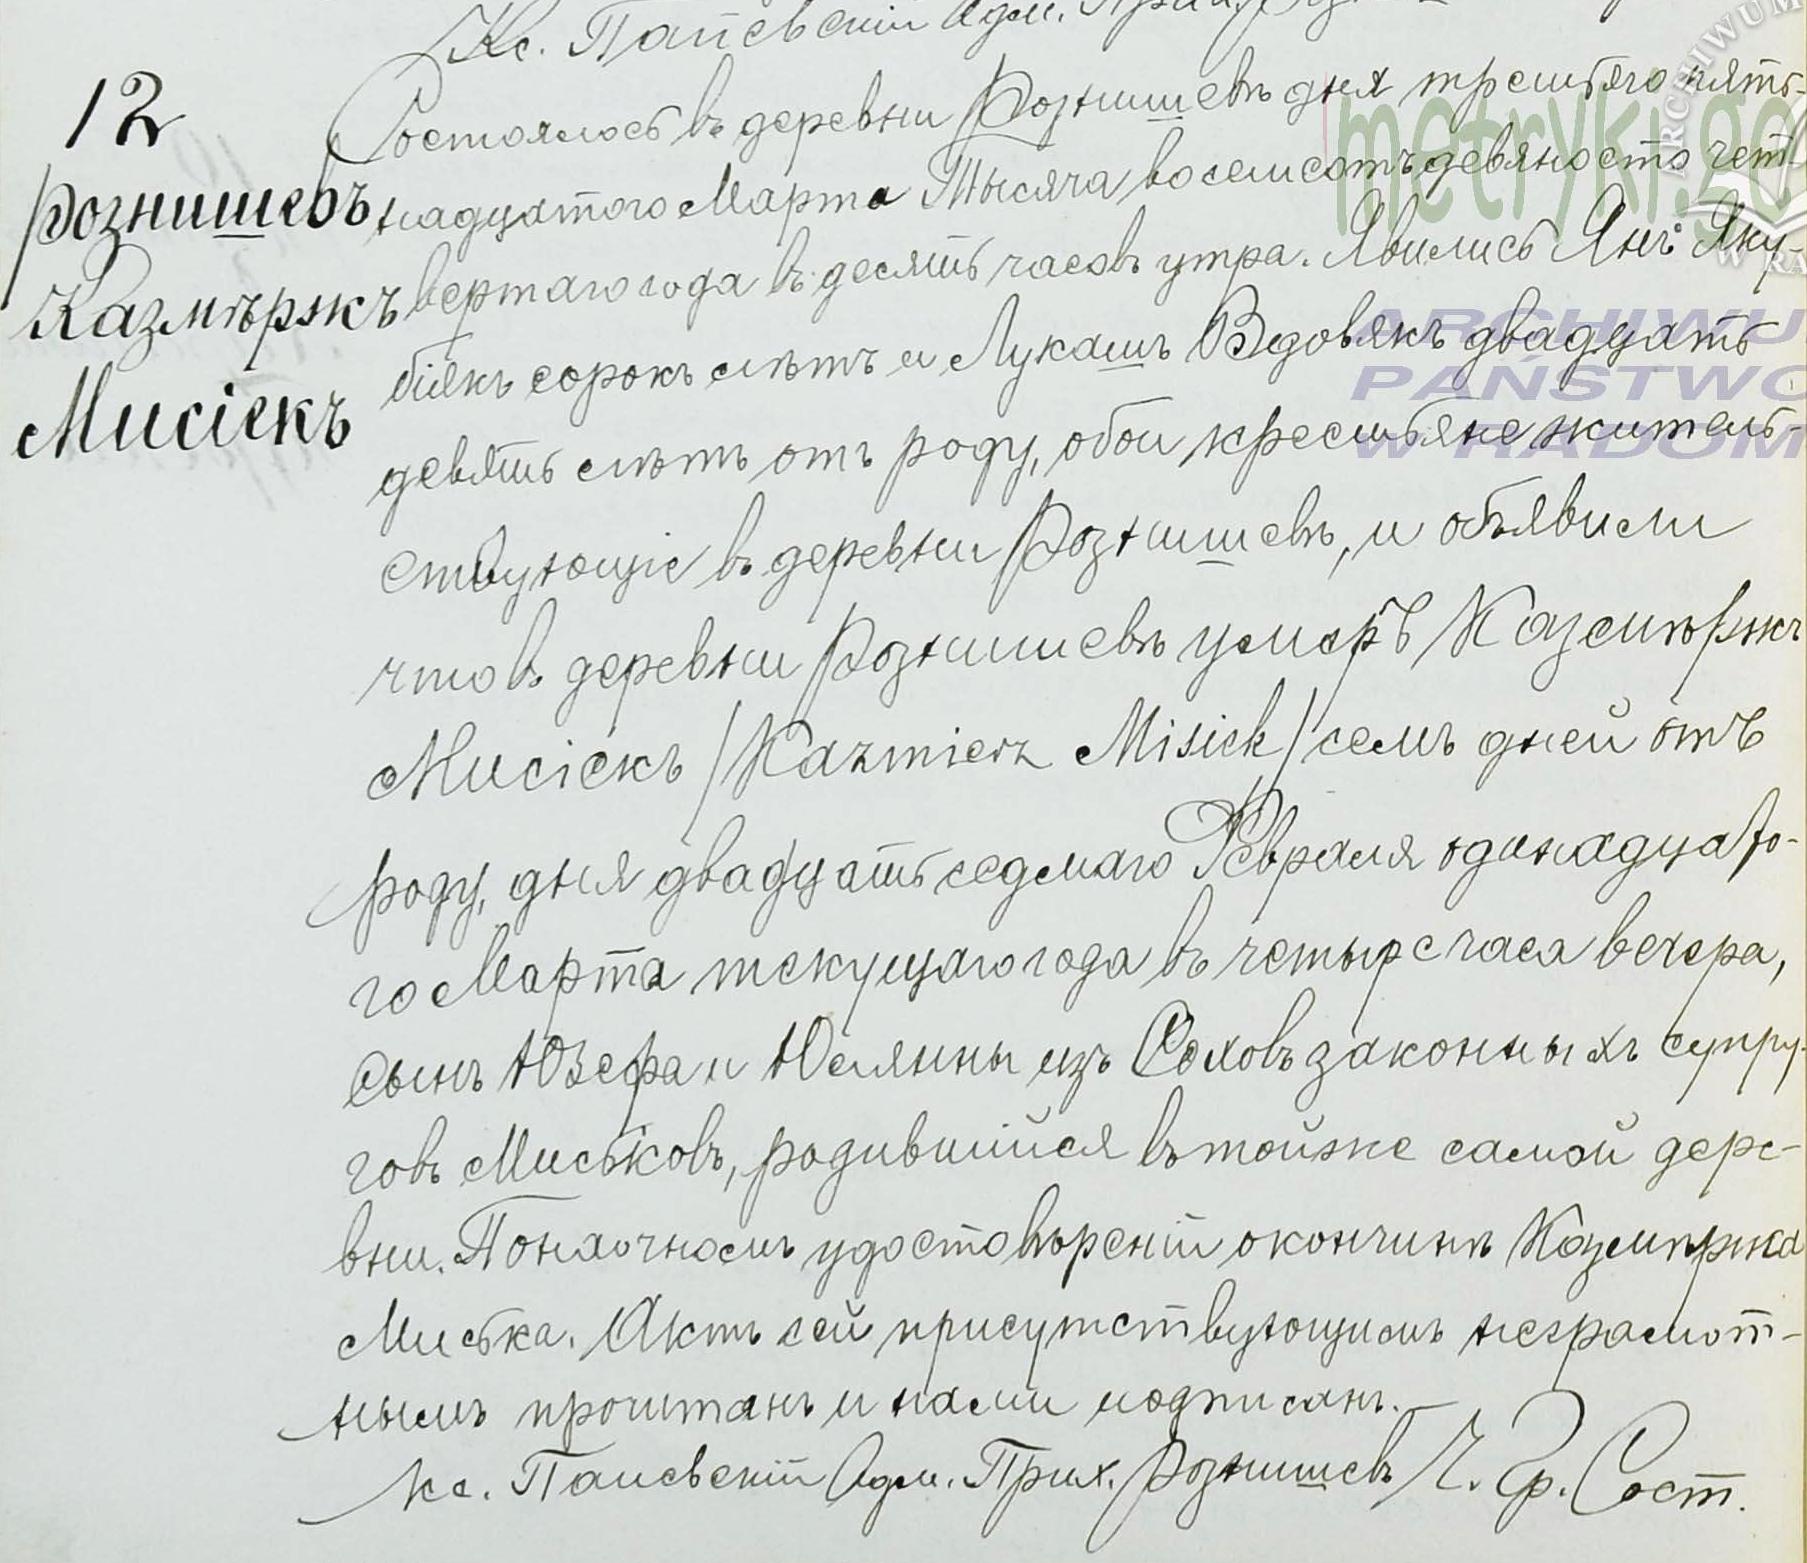 Кс. Паневскій Адм.
12
Рознишевъ
Казмѣржъ
Мисіекъ
Состоялось въ деревни Рознишевѣ дня третьяго пять-
надцатого Марта Тысяча восемсотъ девяносто чет-
вертаго года въ десять часовъ утра. Явились Янъ Яку-
біякъ сорокъ лѣтъ и Лукашъ Вдовякъ двадцать
девять лѣтъ отъ роду, обои крестьяне житель-
ствующіе въ деревни Рознишевѣ, и объявили
что въ деревни Рознишевѣ умеръ Казмѣржъ
Мисіекъ /Kazmierz Misiek/ семъ дней отъ
роду, дня двадцать седмаго Февраля одинадцато-
го Марта текущаго года въ четыре часа вечера,
сынъ Юзефа и Юлянны изъ Соховъ законныхъ супру-
говъ Миськовъ, родившійся въ тойже самой дере-
вни. По наочномъ удостовѣреніи окончинѣ Казмѣржа
Миська. Актъ сей присутствующимъ неграмот-
нымъ прочитанъ и нами подписанъ.
Кс. Паневскій Адм. Прих. Рознишевъ Ч. Гр. Сост.
metryki.ge
ARCHIWUM
ARCHIWU
PAŃSTWO
W RADOM